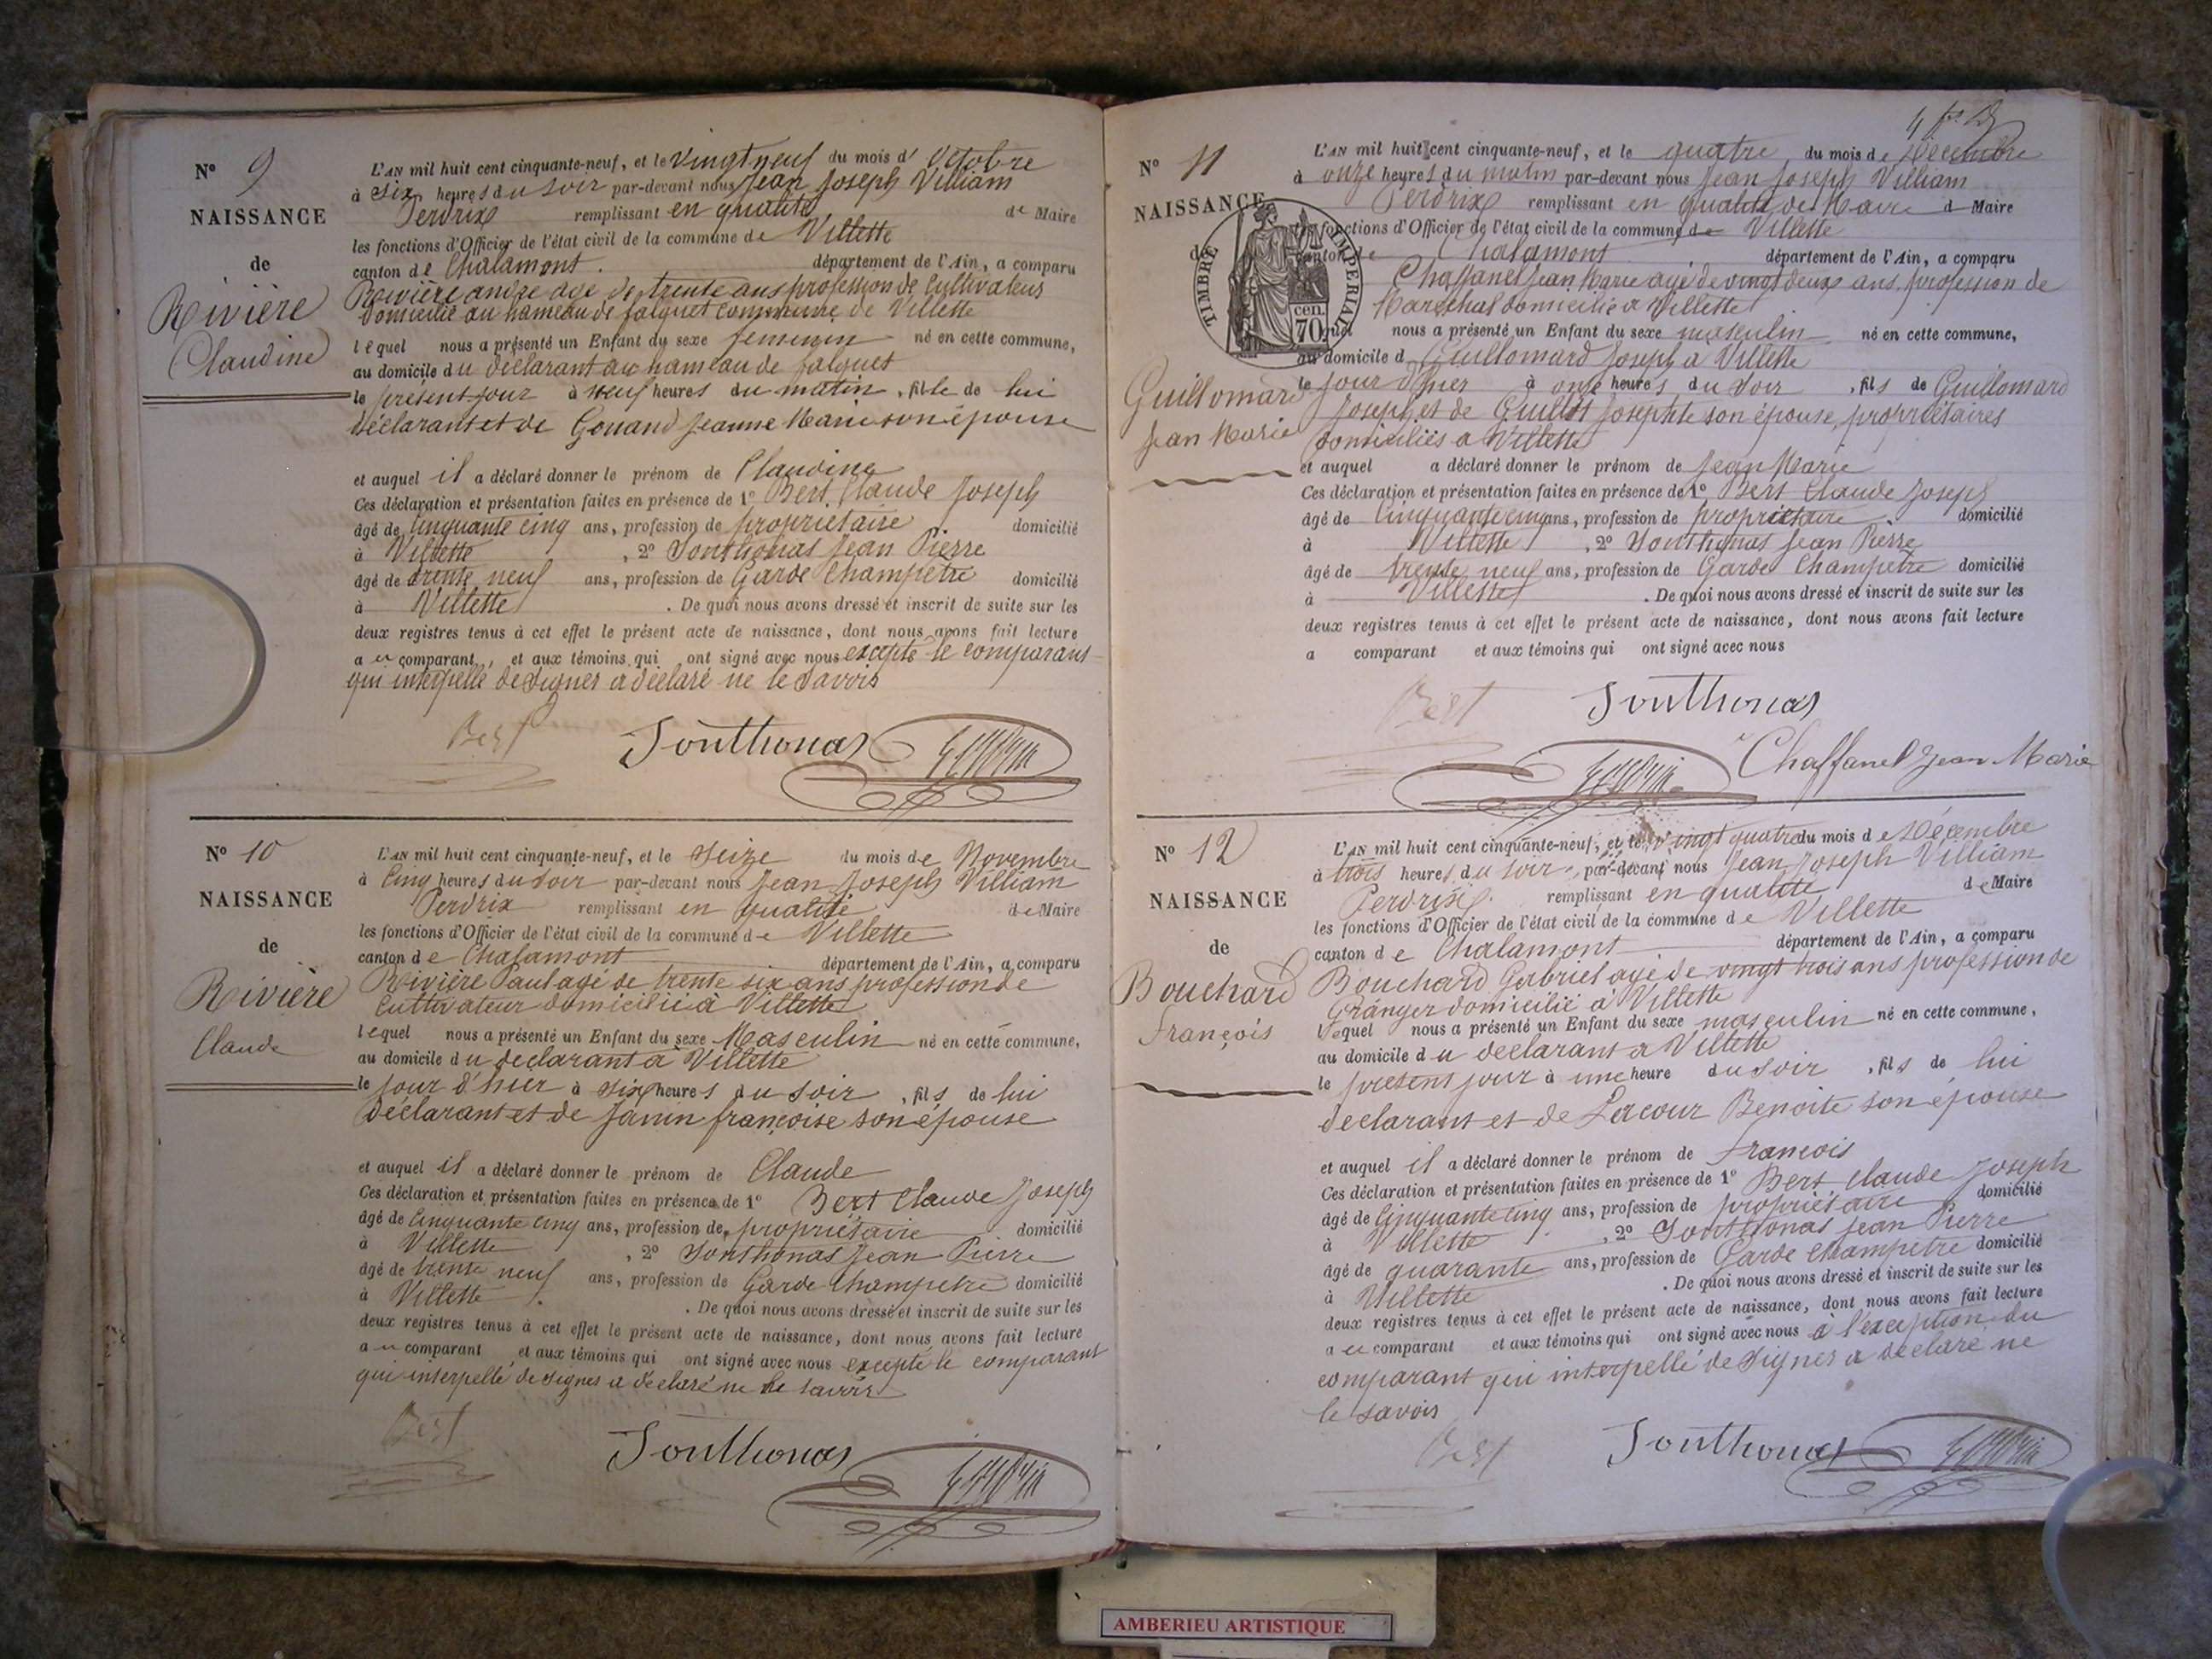 Nº 9
NAISSANCE
de
Rivière
Claudine
L'AN mil huit cent cinquante-neuf, et le vingt neuf du mois d' Octobre
à six heures du soir par-devant nous Jean Joseph Villiam
Perdrix remplissant en qualité de Maire
les fonctions d'Officier de l'état civil de la commune de Villette
canton de Chalamont. département de l'Ain, a comparu
Rivière andre agé de trente ans profession de Cultivateur
Domicilié au hameau de falquet commune de Villette
lequel nous a présenté un Enfant du sexe feminin né en cette commune,
au domicile du déclarant au hameau de falquet
le présent jour à neuf heures du matin, fille de lui
déclarant et de Gouand Jeanne Marie son épouse
et auquel il a déclaré donner le prénom de Claudine
Ces déclaration et présentation faites en présence de 1º Bert Claude Joseph
âgé de Cinquante cinq ans, profession de propriétaire domicilié
à Villette, 2º Jonthonas Jean Pierre
âgé de trente neuf ans, profession de Garde Champetre domicilié
à Villette. De quoi nous avons dressé et inscrit de suite sur les
deux registres tenus à cet effet le présent acte de naissance, dont nous avons fait lecture
au comparant, et aux témoins qui ont signé avec nous excepté le comparant
qui interpellé de signer a déclaré ne le savoir
Bert Jonthonas
Nº 10
NAISSANCE
de
Rivière
Claude
L'AN mil huit cent cinquante-neuf, et le Seize du mois de Novembre
à Cinq heures du soir par-devant nous Jean Joseph Villiam
Perdrix remplissant en qualité de Maire
les fonctions d'Officier de l'état civil de la commune de Villette
canton de Chalamont département de l'Ain, a comparu
Rivière Paul agé de trente six ans profession de
Cultivateur domicilié à Villette
lequel nous a présenté un Enfant du sexe Masculin né en cette commune,
au domicile du declarant à Villette
le jour d'hier à six heures du soir, fils de lui
déclarant et de Janin françoise son épouse
et auquel il a déclaré donner le prénom de Claude
Ces déclaration et présentation faites en présence de 1º Bert Claude Joseph
âgé de Cinquante cinq ans, profession de propriétaire domicilié
à Villette, 2º Jonthonas Jean Pierre
âgé de trente neuf ans, profession de Garde Champetre domicilié
à Villette. De quoi nous avons dressé et inscrit de suite sur les
deux registres tenus à cet effet le présent acte de naissance, dont nous avons fait lecture
au comparant, et aux témoins qui ont signé avec nous excepté le comparant
qui interpellé de signer a declaré ne le savoir
Bert
Jonthonas
Nº 11
NAISSANCE
de
TIMBRE IMPERIAL
70 cen.
Guillomard
Jean Marie
L'AN mil huit cent cinquante-neuf, et le quatre du mois de Décembre
à onze heures du matin par-devant nous Jean Joseph Villiam
Perdrix remplissant en qualité de Maire d Maire
les fonctions d'Officier de l'état civil de la commune de Villette
canton de Chalamont département de l'Ain, a comparu
Chaffanel Jean Marie agé de vingt deux ans profession de
Maréchal domicilié à Villette
lequel nous a présenté un Enfant du sexe masculin né en cette commune,
au domicile d Guillomard Joseph à Villette
le jour d'hier à onze heures du soir, fils de Guillomard
Joseph et de Guillot Josephte son épouse, propriétaires
domiciliés à Villette
et auquel a déclaré donner le prénom de Jean Marie
Ces déclaration et présentation faites en présence de 1º Bert Claude Joseph
âgé de Cinquante cinq ans, profession de propriétaire domicilié
à Villette, 2º Jonthonas Jean Pierre
âgé de trente neuf ans, profession de Garde Champetre domicilié
à Villette. De quoi nous avons dressé et inscrit de suite sur les
deux registres tenus à cet effet le présent acte de naissance, dont nous avons fait lecture
a comparant et aux témoins qui ont signé avec nous
Bert Jonthonas
Chaffanel Jean Marie
Nº 12
NAISSANCE
de
Bouchard
François
L'AN mil huit cent cinquante-neuf, et le vingt quatre du mois de Décembre
à trois heures du soir, par-devant nous Jean Joseph Villiam
Perdrix remplissant en qualité de Maire
les fonctions d'Officier de l'état civil de la commune de Villette
canton de Chalamont département de l'Ain, a comparu
Bouchard Gabriel agé de vingt trois ans profession de
Granger domicilié à Villette
lequel nous a présenté un Enfant du sexe masculin né en cette commune,
au domicile du declarant à Villette
le present jour à une heure du soir, fils de lui
declarant et de Lacour Benoite son épouse
et auquel il a déclaré donner le prénom de François
Ces déclaration et présentation faites en présence de 1º Bert Claude Joseph
âgé de Cinquante cinq ans, profession de propriétaire domicilié
à Villette, 2º Jonthonas Jean Pierre
âgé de quarante ans, profession de Garde Champetre domicilié
à Villette. De quoi nous avons dressé et inscrit de suite sur les
deux registres tenus à cet effet le présent acte de naissance, dont nous avons fait lecture
au comparant et aux témoins qui ont signé avec nous à l'exception du
comparant qui interpellé de signer a déclaré ne
le savoir
Bert Jonthonas
AMBERIEU ARTISTIQUE